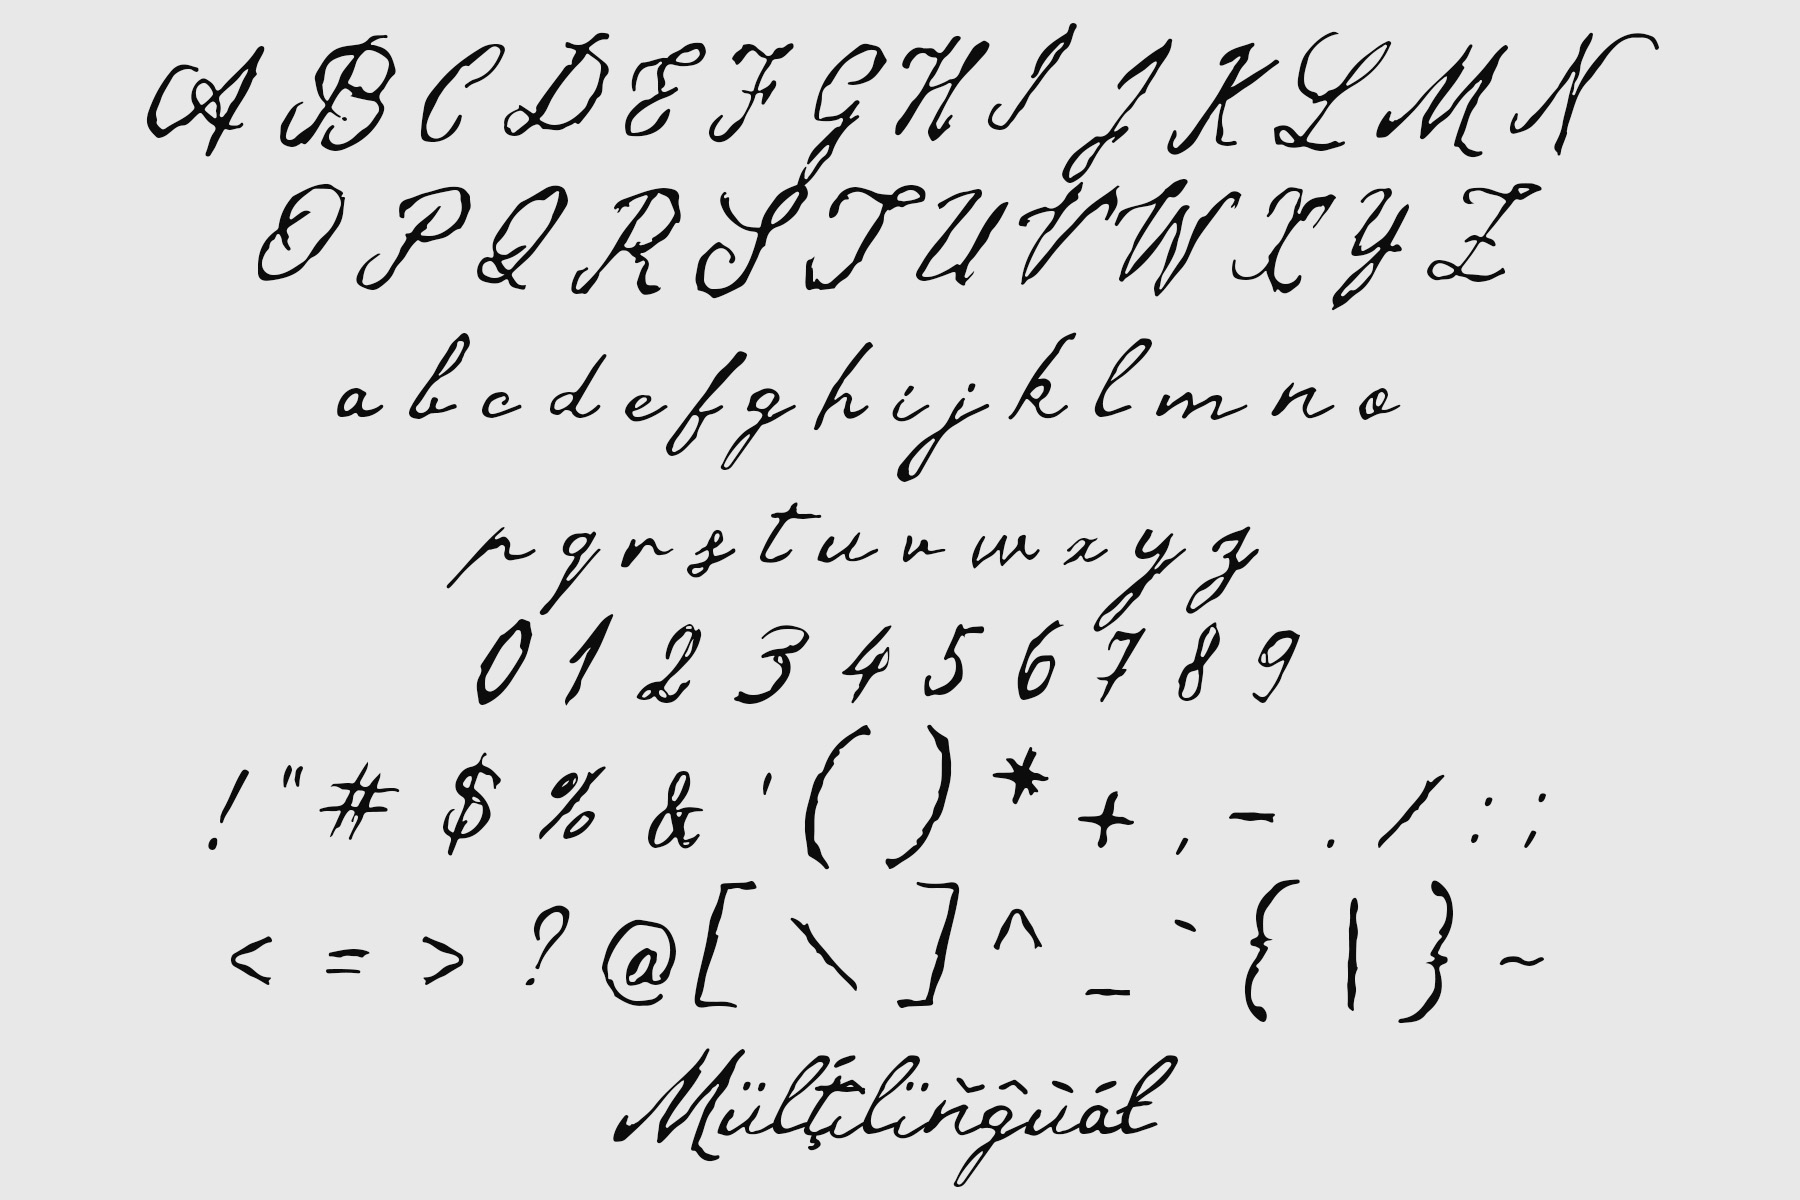 A B C D E F G H I J K L M N
O P Q R S T U V W X Y Z
a b c d e f g h i j k l m n o
p q r s t u v w x y z
0 1 2 3 4 5 6 7 8 9
! " # $ % & ' ( ) * + , - . / : ;
< = > ? @ [ \ ] ^ _ ` { | } ~
Mülţíľïňĝùáł